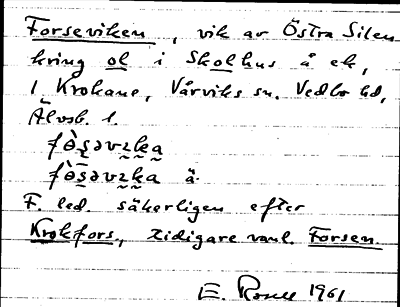 Forseviken, vik av Östra Silen
kring ol i Skolhus å ek,
1 Krokane, Vårviks sn. Vedbo hd,
Älvsb. l.
fò̱s̱əvɪḵa
fò̱s̱əvɪḵa ä.
F. led. säkerligen efter
Krokfors, tidigare vanl. Forsen.
E. Rosell 1961